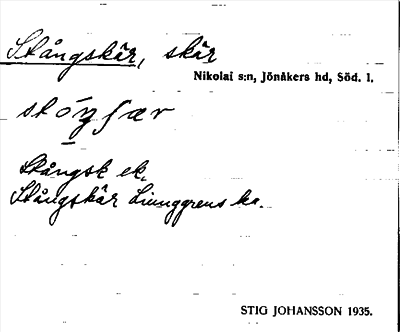 Stångskär, skär
Nikolai s:n, Jönåkers hd, Söd. l.
Stångsk ek.
Stångskär Liunggrens ka.
STIG JOHANSSON 1935.